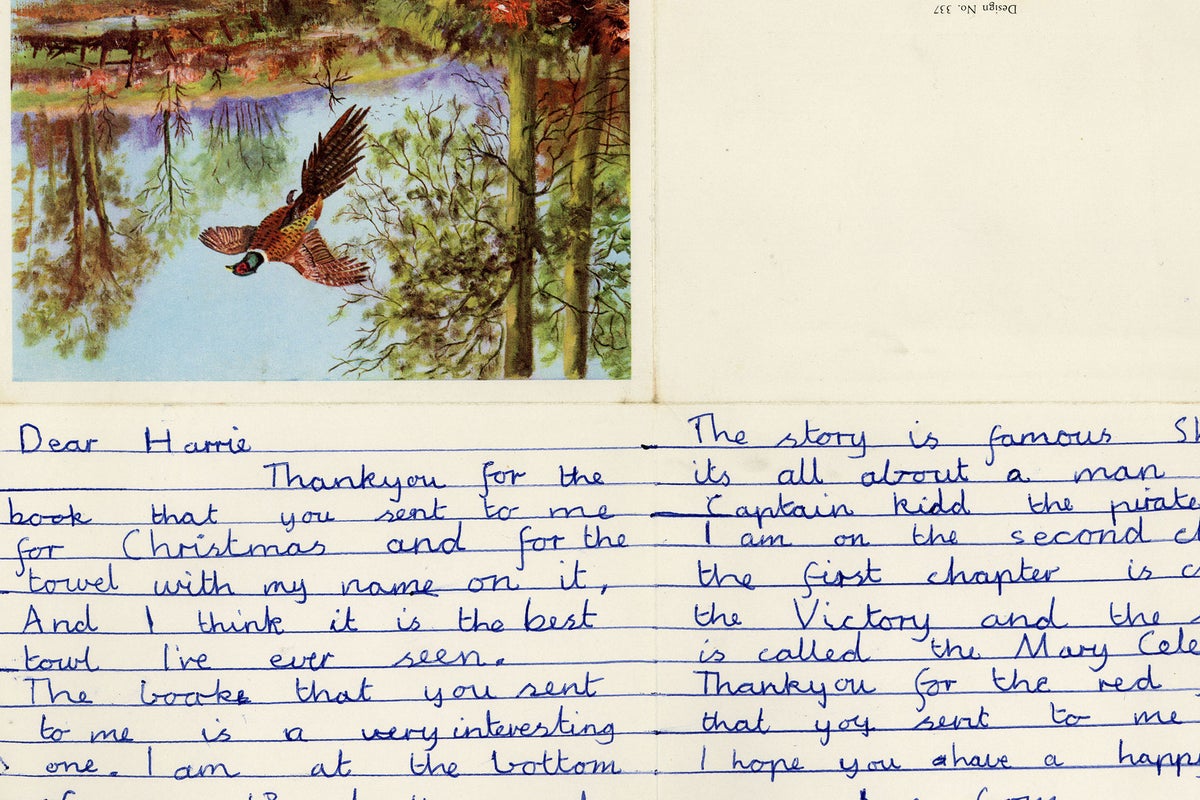 Design No. 337
Dear Harrie
Thankyou for the
book that you sent to me
for Christmas and for the
towel with my name on it,
And I think it is the best
towl I've ever seen.
The booke that you sent
to me is a very interesting
one. I am at the bottom
The story is famous Sh
its all about a man
Captain kidd the pirate
I am on the second c
the first chapter is c
the Victory and the s
is called the Mary Cele
Thankyou for the red
that yoy sent to me
I hope you ahave a happy